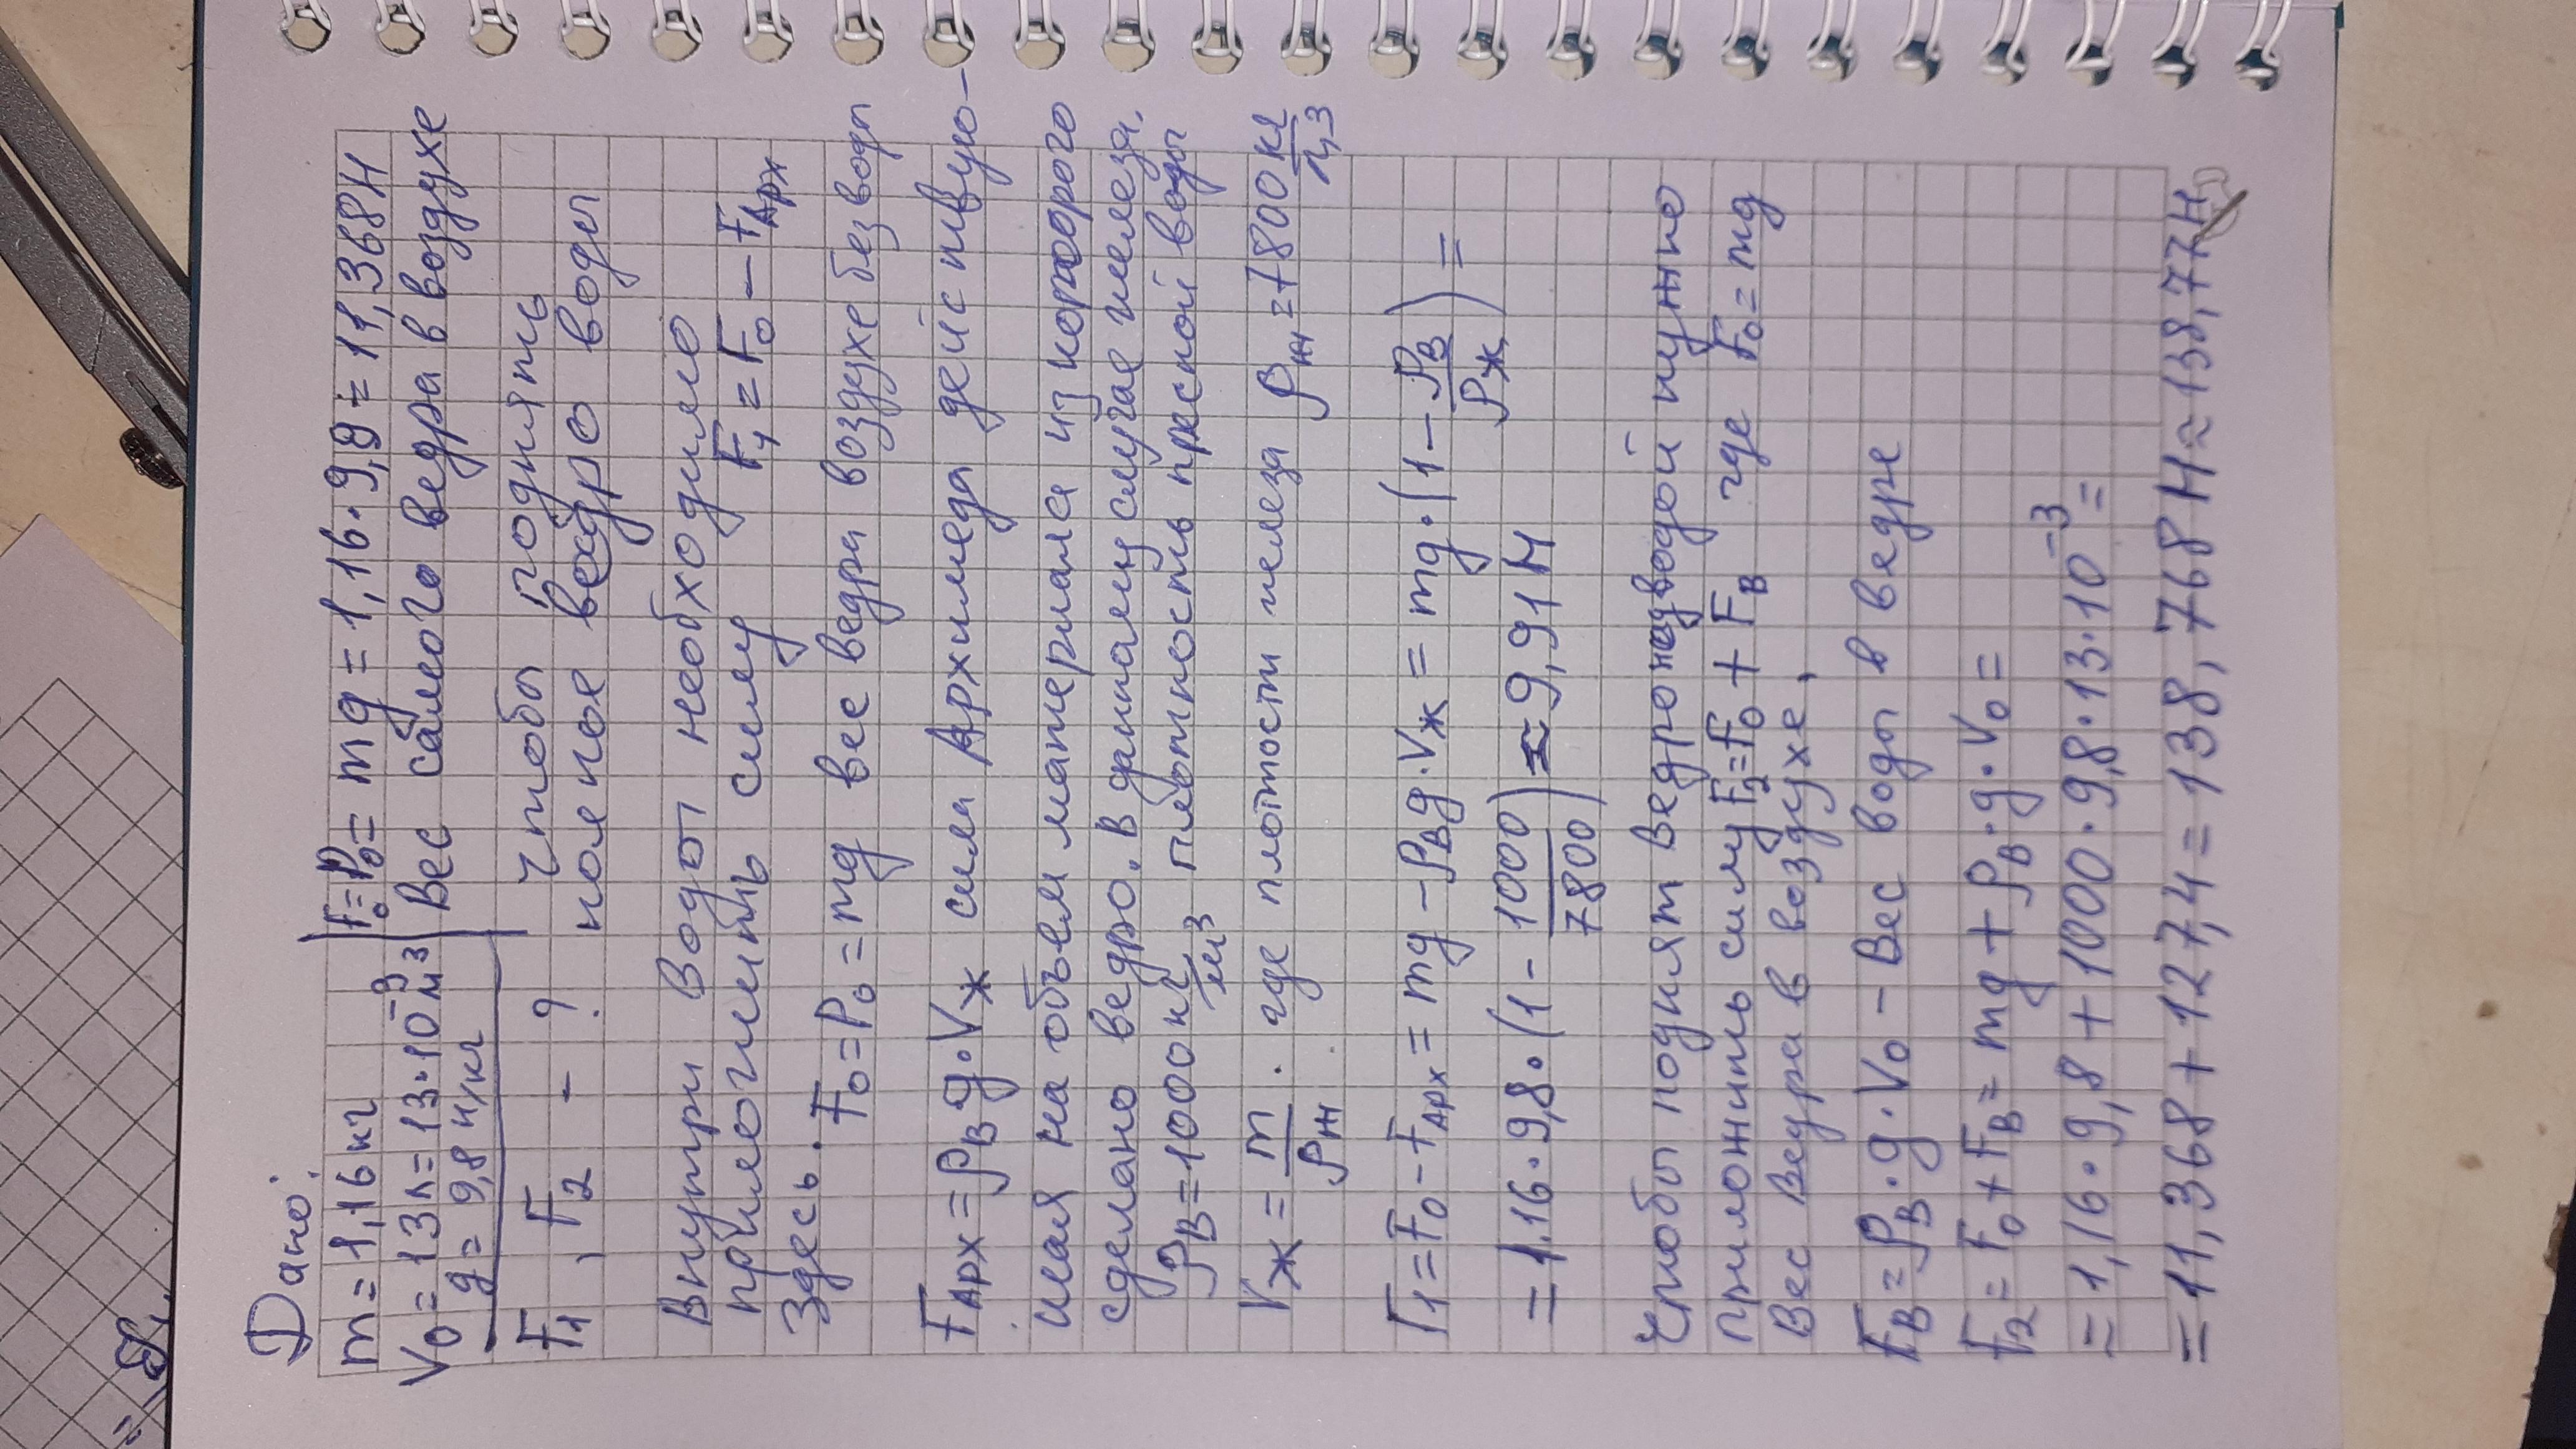 Дано:
m = 1,16 кг
V₀ = 13 л = 13·10⁻³ м³
g = 9,8 н/кг
F₁, F₂ - ?
F₀ = P₀ = mg = 1,16·9,8 = 11,368 Н
Вес самого ведра в воздухе
Чтобы поднять
полное ведро воды
Внутри воды необходимо
приложить силу F₁ = F₀ − Fарх
Здесь. F₀ = P₀ = mg вес ведра воздухе без воды
Fарх = ρв g·Vж сила Архимеда действую-
щая на объем материала из которого
сделано ведро. в данному случае железа.
ρв = 1000 кг/м³ плотность пресной воды
Vж = m/ρж . где плотости железа ρж = 7800 кг/м³
F₁ = F₀ − Fарх = mg − ρв g·Vж = mg·(1 − ρв/ρж) =
= 1,16·9,8·(1 − 1000/7800) ≈ 9,91 Н
Чтобы поднят ведро надводой нужно
приложить силу F₂ = F₀ + Fв где F₀ = mg
Вес ведра в воздухе,
Fв = ρв·g·V₀ − Вес воды в ведре
F₂ = F₀ + Fв = mg + ρв·g·V₀ =
= 1,16·9,8 + 1000·9,8·13·10⁻³ =
= 11,368 + 127,4 = 138,768 Н ≈ 138,77 Н